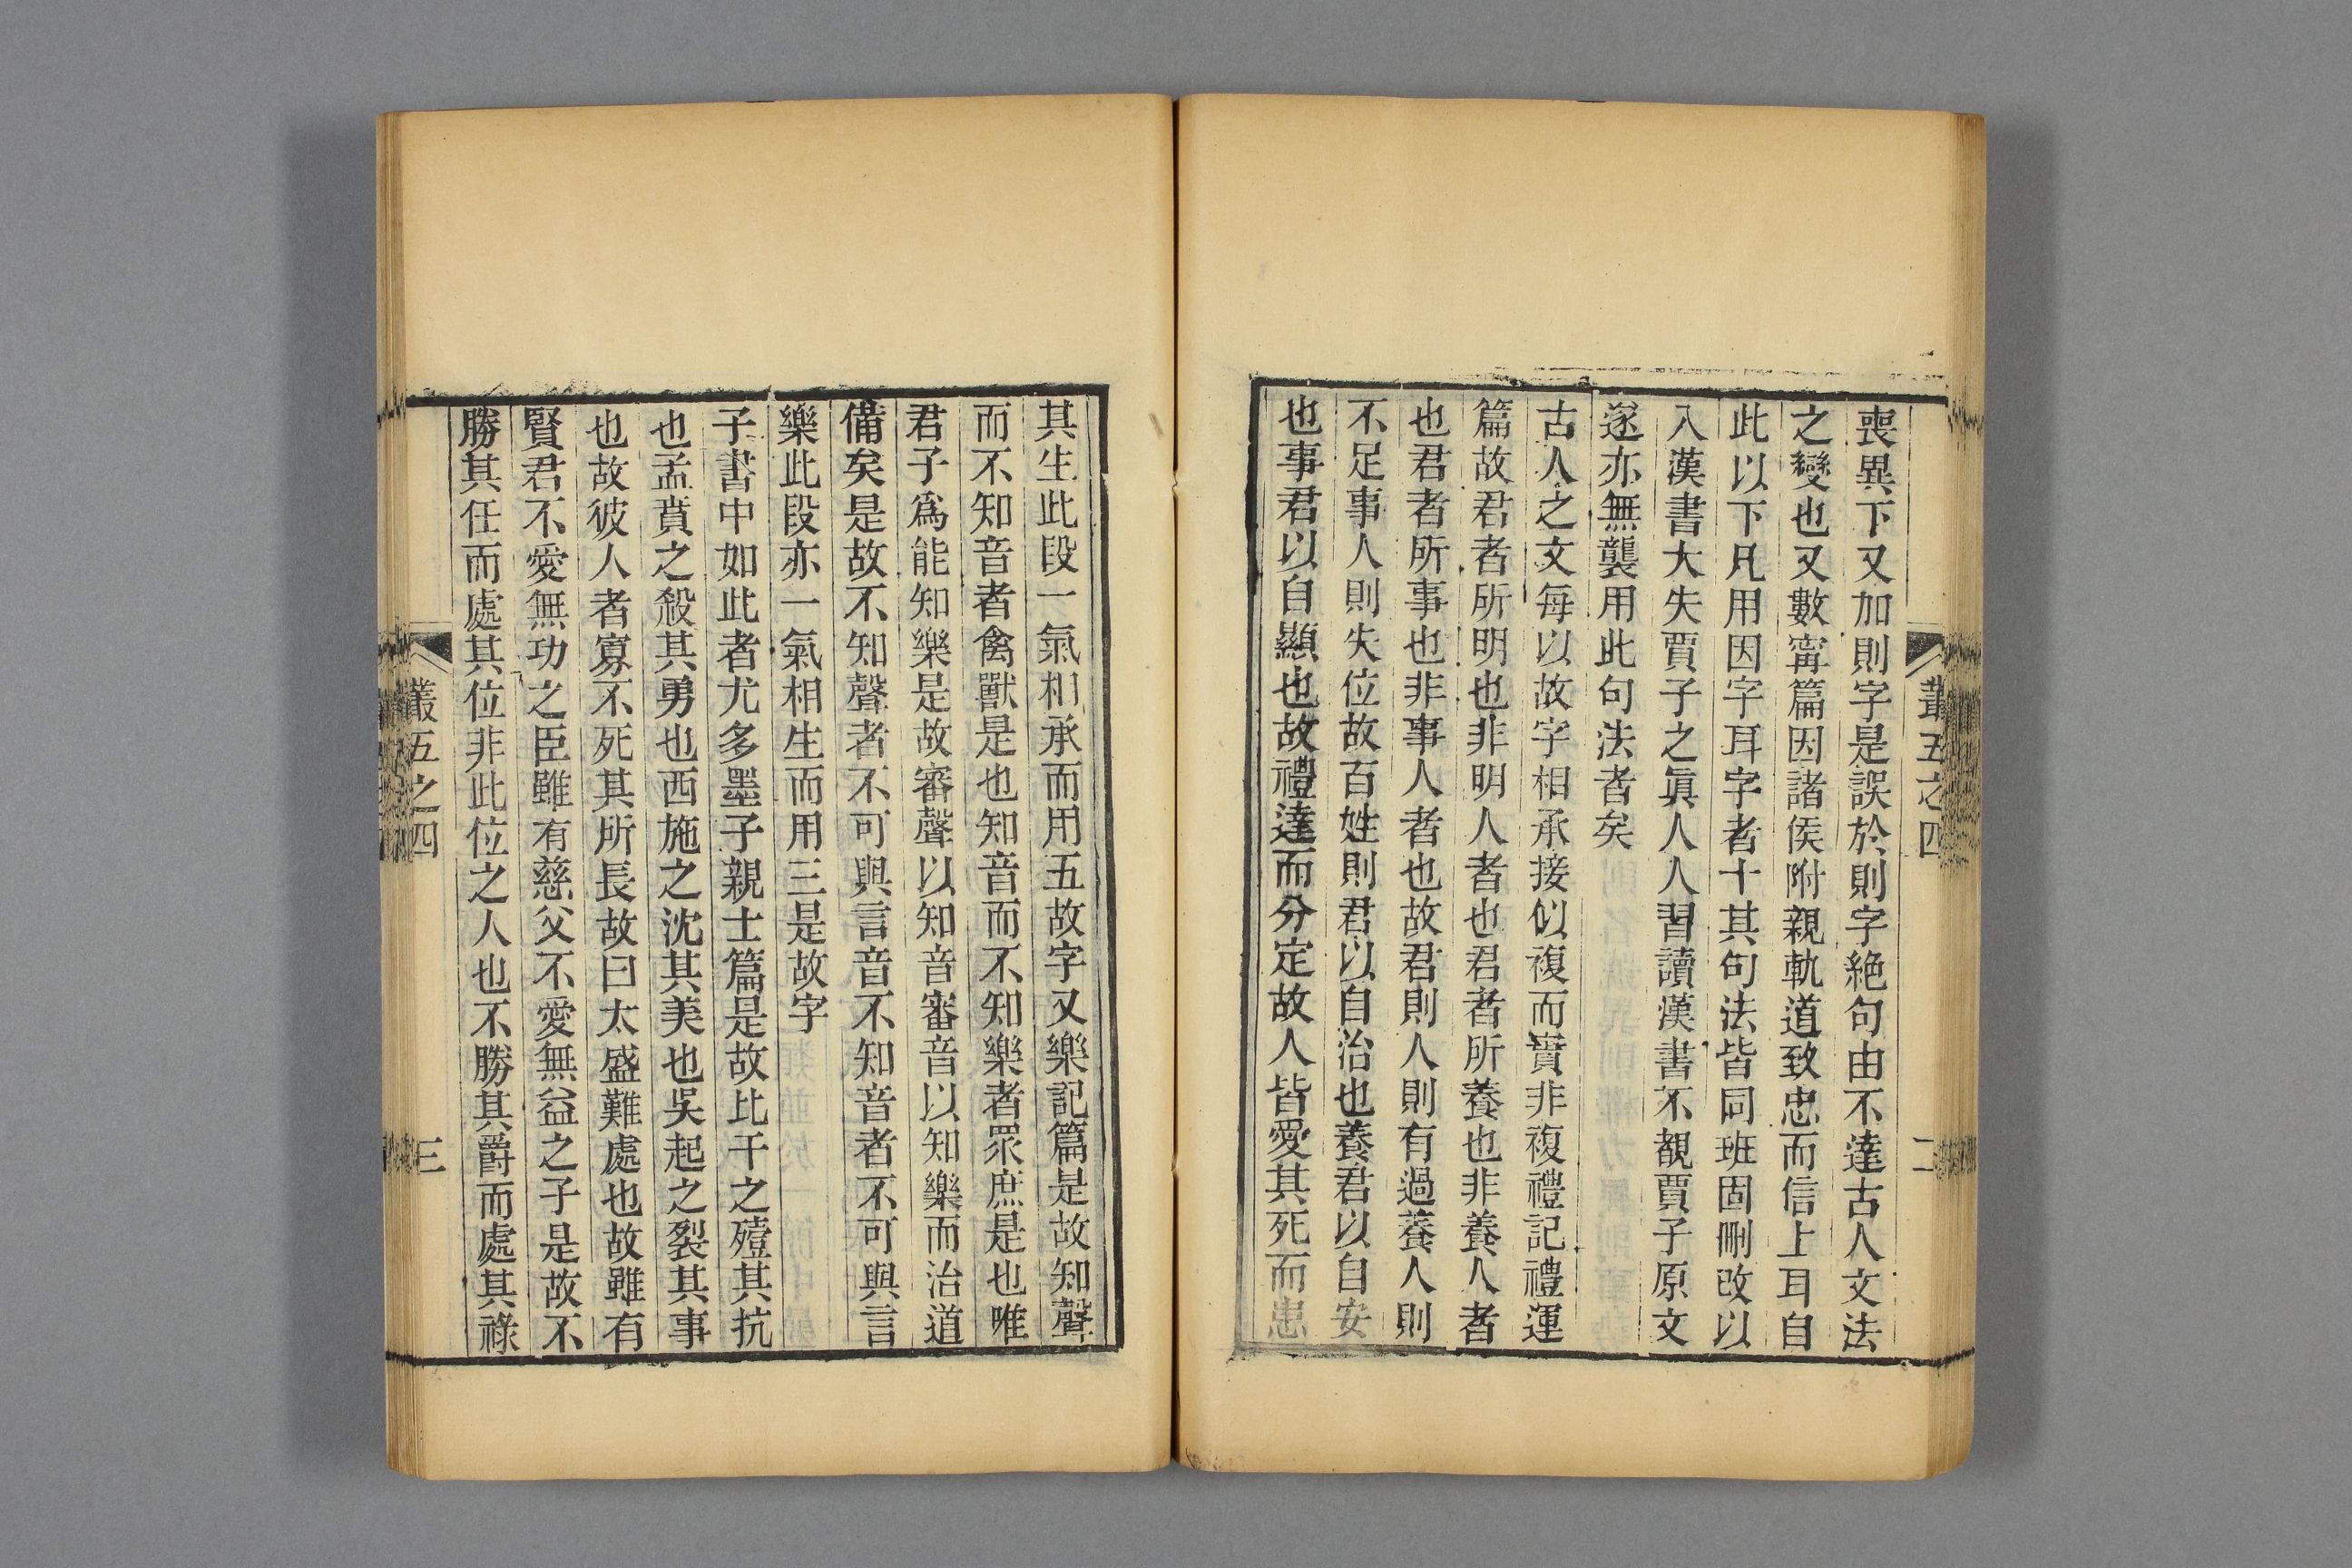 叢五之四
二
喪異下又加則字是誤於則字絶句由不達古人文法
之變也又數甯篇因諸侯附親軌道致忠而信上耳自
此以下凡用因字耳字者十其句法皆同班固刪改以
入漢書大失賈子之眞人人習讀漢書不覩賈子原文
遂亦無襲用此句法者矣
古人之文每以故字相承接似複而實非複禮記禮運
篇故君者所明也非明人者也君者所養也非養人者
也君者所事也非事人者也故君則人則有過養人則
不足事人則失位故百姓則君以自治也養君以自安
也事君以自顯也故禮達而分定故人皆愛其死而患
其生此段一氣相承而用五故字又樂記篇是故知聲
而不知音者禽獸是也知音而不知樂者眾庶是也唯
君子爲能知樂是故審聲以知音審音以知樂而治道
備矣是故不知聲者不可與言音不知音者不可與言
樂此段亦一氣相生而用三是故字
子書中如此者尤多墨子親士篇是故比干之殪其抗
也孟賁之殺其勇也西施之沈其美也吳起之裂其事
也故彼人者寡不死其所長故曰太盛難處也故雖有
賢君不愛無功之臣雖有慈父不愛無益之子是故不
勝其任而處其位非此位之人也不勝其爵而處其祿
叢五之四
三